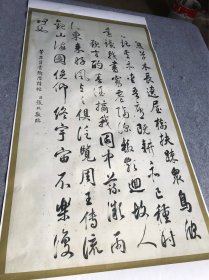 孟夏草木長遶屋樹扶疎眾鳥欣
有託吾亦愛吾廬既耕亦已種時
還讀我書窮巷隔深轍頗迴故人
車歡言酌春酒摘我園中蔬微雨
從東來好風與之俱汎覽周王傳流
觀山海圖俛仰終宇宙不樂復
何如